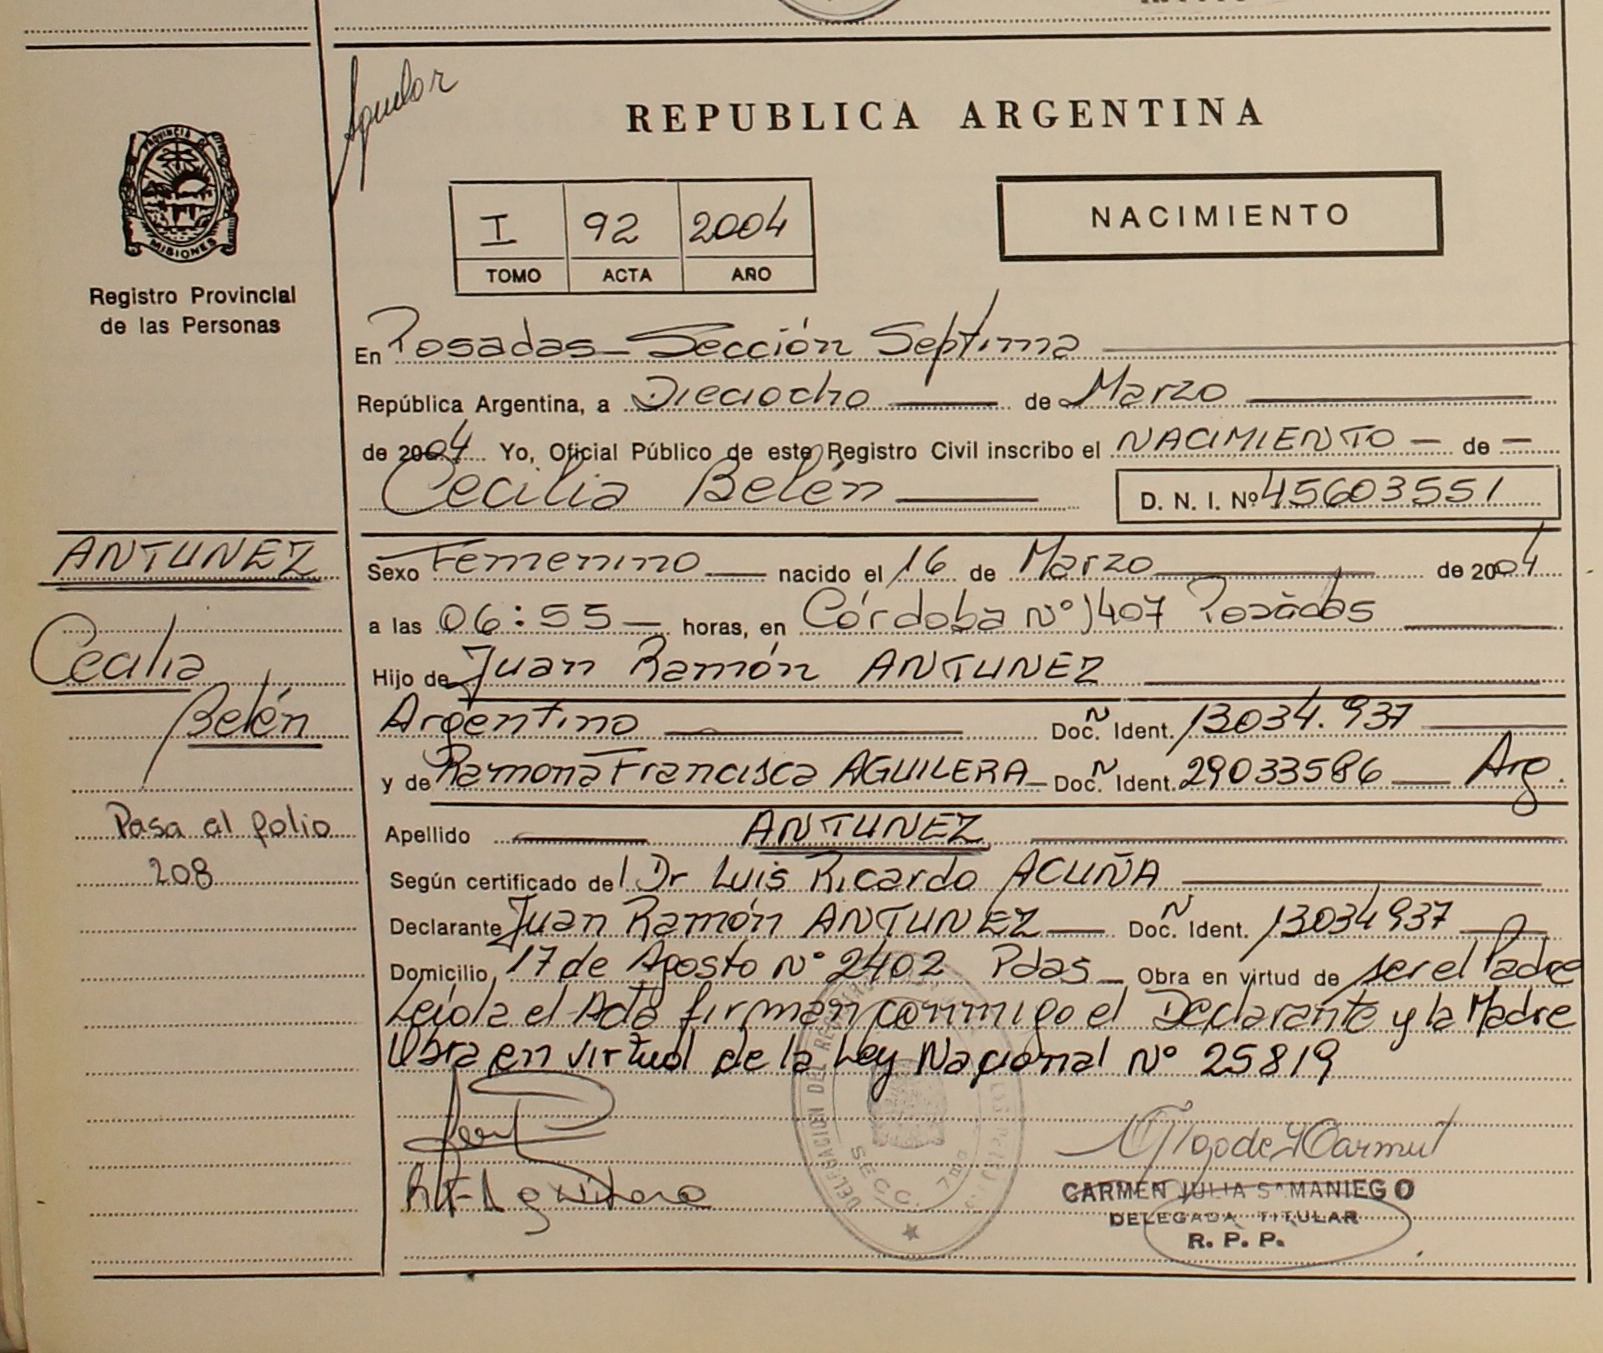 Aguilar
REPUBLICA ARGENTINA
PROVINCIA DE
MISIONES
Registro Provincial
de las Personas
I 92 2004
TOMO ACTA AÑO
NACIMIENTO
En Posadas - Sección Septima
República Argentina, a Dieciocho de Marzo
de 2004 Yo, Oficial Público de este Registro Civil inscribo el NACIMIENTO - de -
Cecilia Belén D. N. I. Nº 45603551
ANTUNEZ
Cecilia
Belén
Pasa al folio
208
Sexo Femenino nacido el 16 de Marzo de 2004
a las 06:55 horas, en Córdoba nº 1407 Posadas
Hijo de Juan Ramón ANTUNEZ
Argentino Doc. N Ident. 13034.937
y de Ramona Francisca AGUILERA - Doc. N Ident. 29033586 Arg.
Apellido ANTUNEZ
Según certificado del Dr Luis Ricardo ACUÑA
Declarante Juan Ramón ANTUNEZ Doc. N Ident. 13034937
Domicilio 17 de Agosto Nº 2402 Pdas - Obra en virtud de ser el Padre
Leída el Acta firman conmigo el Declarante y la Madre
Obra en virtud de la Ley Nacional Nº 25819
DELEGACION DEL
SECC. 7ma
R F Aguilera
CARMEN JULIA SAMANIEGO
DELEGADA TITULAR
R. P. P.